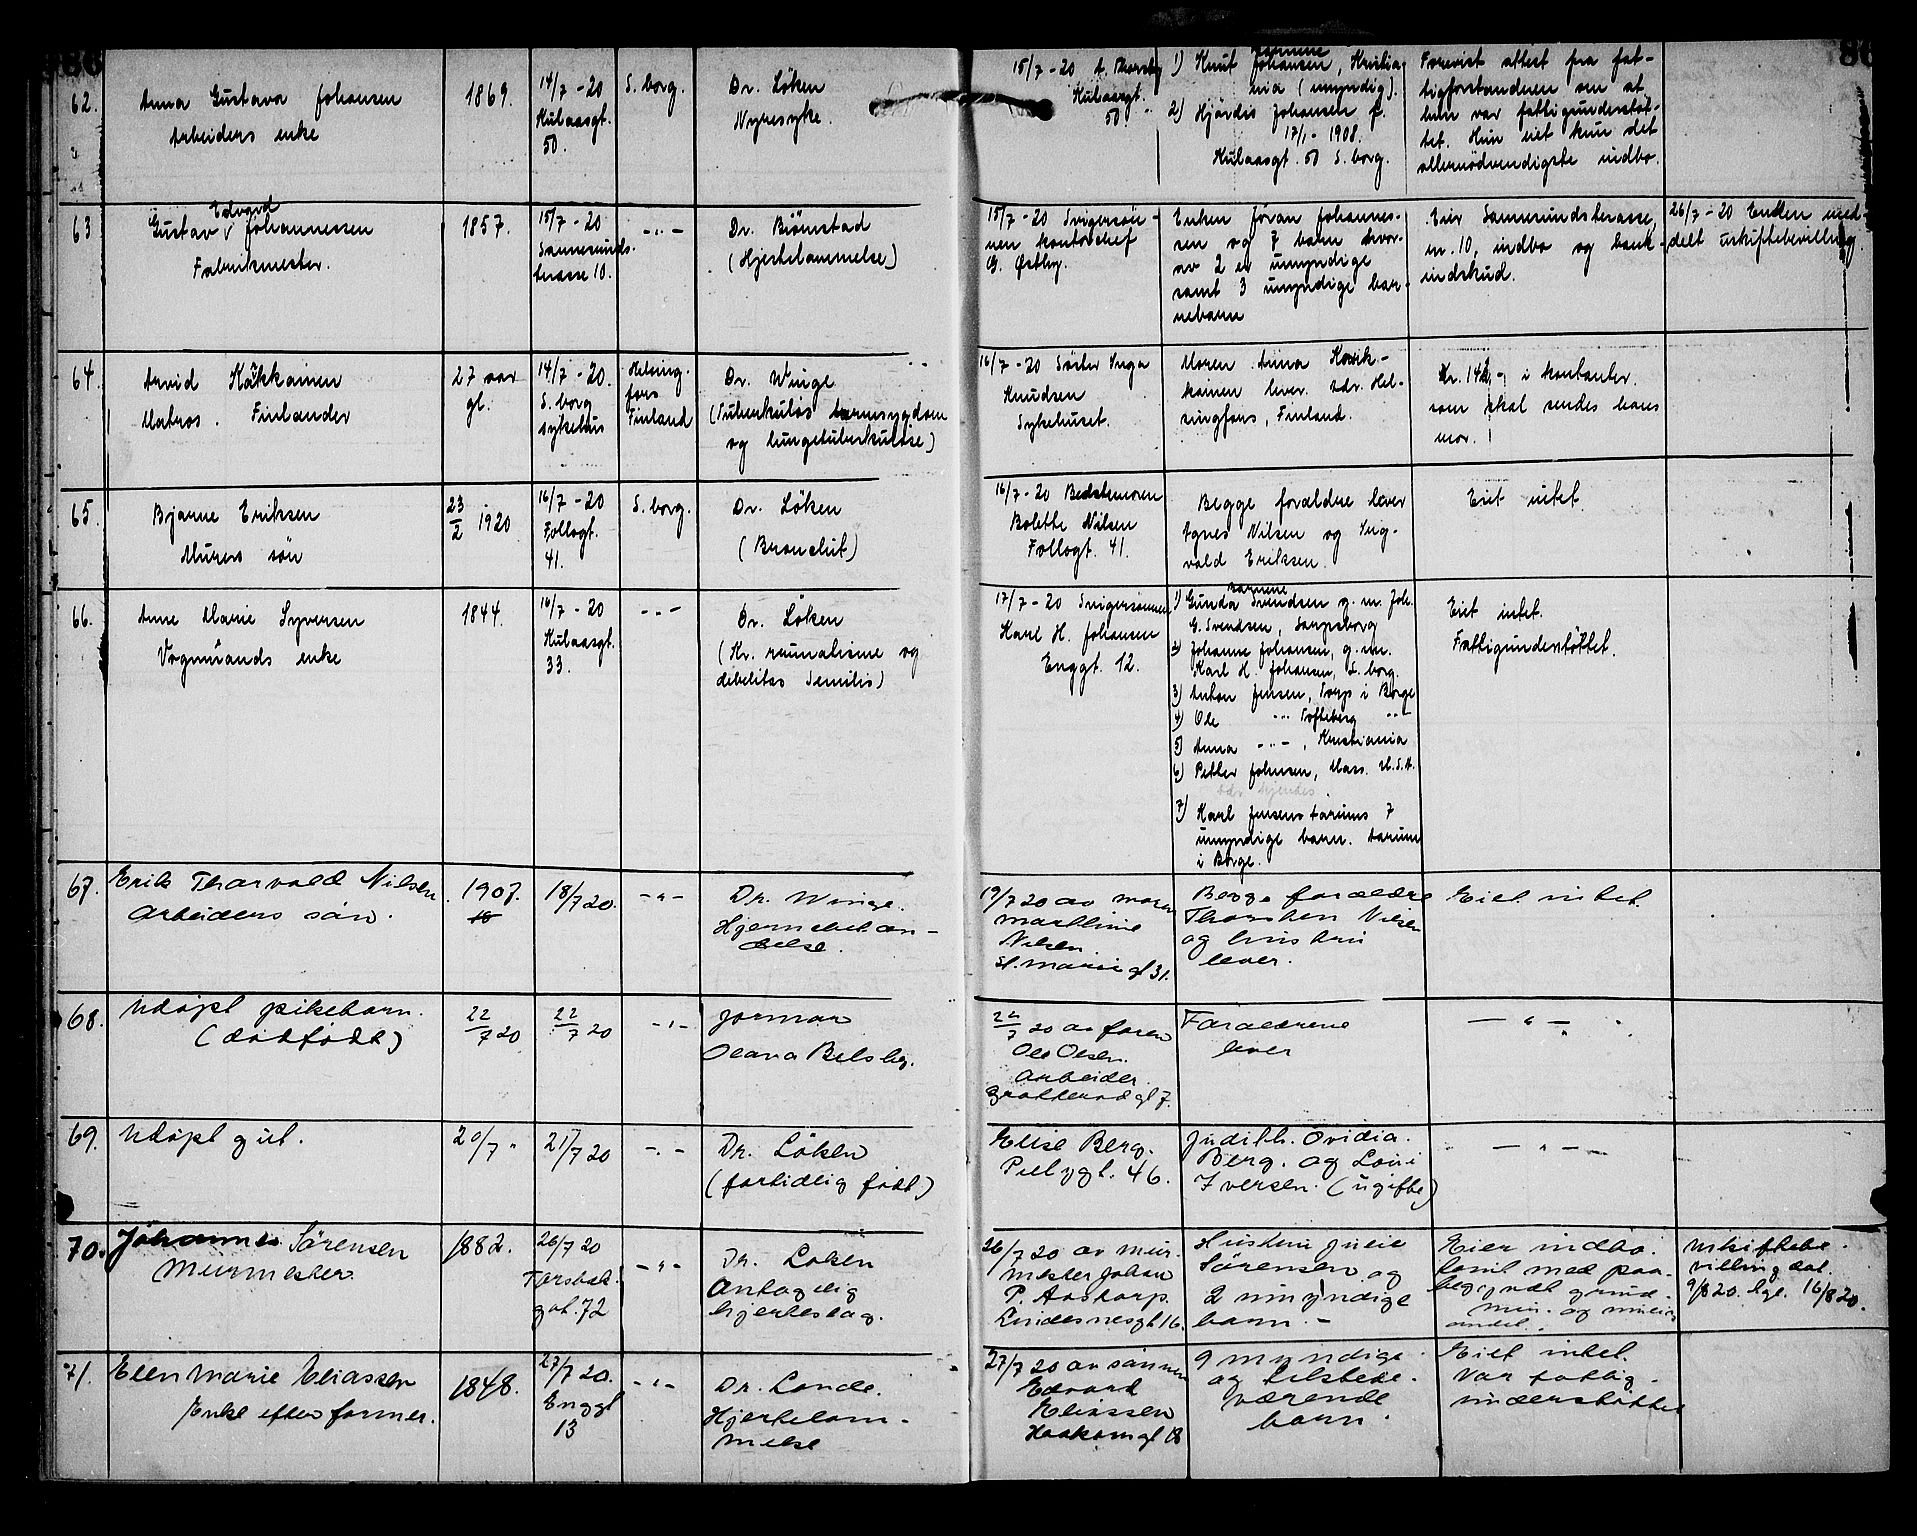 86
86
62.
Anna Gustava Johansen
Arbeiders enke
1869.
14/7 - 20
Kulaasgt.
50.
S. borg.
Dr. Löken
Nyresyke.
15/7 - 20 A. Thorsby
Kulaasgt.
50.
Barnene
1) Knut Johansen, Kristia-
nia (umyndig).
2) Hjördis Johansen f.
17/1 - 1908.
Kulaasgt. 50 S. borg.
Forevist attest fra fat-
tigforstanderen om at
hun var fattigunderstöt-
tet. Hun eiet kun det
allernödvendigste indbo.
63
Edvard
Gustav v Johannessen
Fabrikmester.
1857.
15/7 - 20
Sannesunds-
terasse 10.
- " -
Dr. Björnstad
(Hjertelammelse)
15/7 - 20 Svigersön-
nen kontorchef
G. Østby.
Enken Jöran Johannes-
sen og 7 barn hvor-
av 2 er umyndige
samt 3 umyndige bar-
nebarn
Eier Sannesundsterasse
n. 10, indbo og bank-
indskud.
26/7 - 20 Enken med-
delt uskiftebevilling.
64.
Arvid Käkkainen
Matros. Finlander
27 aar
gl.
14/7 - 20.
S. borg
sykehus
Helsing-
fors
Finland
Dr. Winge
(Tuberkulös tarmsygdom
og lungetuberkulose)
16/7 - 20 Söster Inga
Knudsen
Sykehuset.
Moren Anna
kainen lever. adr. Hel-
singfors, Finland.
i kontanter.
som skal sendes hans
mor.
65.
Bjarne Eriksen
Murers sön
23/2 1920
16/7 - 20
Follogt.
41.
S. borg.
Dr. Löken
(Bronchit)
16/7 - 20 Bedstemoren
Bolette Nilsen
Follogt. 41.
Begge forældre lever
Agnes Nilsen og Sig-
vald Eriksen.
Eiet intet.
66.
Anne Marie Syversen
Vognmands enke
1844.
16/7 - 20
Kulaasgt.
33.
- " -
Dr. Löken
(Kr. reumatisme og
debelitas Senilis)
17/7 - 20 Svigersønnen
Karl H. Johansen
Enggt. 12.
Barnene
1) Gunda Svendsen g. m. Joh.
G. Svendsen, Sarpsborg
2) Johanne Johansen, g. m.
Karl H. Johansen, S. borg.
3) Anton Jensen, Torp i Borge
4) Ole - " - Tofteberg - " -
5) Anna - " - , Kristiania
6) Petter Johnsen, Mass. U. S. A.
7) Karl Jensens Tarums 7
umyndige barn. Tarum
i Borge.
Eiet intet.
Fattigunderstöttet.
67.
Erik Thorvald Nilsen
Arbeiders sön.
1907.
18/7 20.
- " -
Dr. Winge.
Hjernebetæn-
delse.
19/7 20 av moren
Mathline
Nilsen
St. Marie gt 31.
Begge forældre
Thorsten Nilsen
og hustru
lever.
Eiet intet
68.
Udöpt pikebarn.
(dödfödt)
22/7 20
22/7 20
- " -
Jormor
Olava Belsby.
22/7 20 av faren
Ole Olsen.
Arbeider
gt 7.
Forældrene
lever
- " -
69.
Udöpt gut.
20/7 "
21/7 20
- " -
Dr. Löken
(fortidlig födt)
Elise Berg.
Pellygt. 46.
Judith. Ovidia.
Berg. og Loui
Iversen. (ugifte)
- " -
70.
Johannes Sörensen
Murmester
1882.
26/7 20
Torsbek.
gat. 72
- " -
Dr. Loken
Antagelig
hjerteslag.
26/7 20 av mur.
mester Johan
P. Aastorp.
Lindesnesgt 16.
Hustru Julie
Sörensen og
2 umyndige
barn. -
Eier indbo.
tomt med paa-
begyndt grund-
mur. og
andel.
Uskiftebe-
villing dat.
9/8 20. 16/8 20.
71.
Elen Marie Eliassen
Enke efter former.
1848.
27/7 20.
Enggt
13
- " -
Dr. Londe.
Hjertelam-
melse
27/7 20 av sönnen
Edvard
Eliassen
Haakonsgt 18
9 myndige
og tilstede-
værende
barn.
Eiet intet.
Var fattig-
understöttet